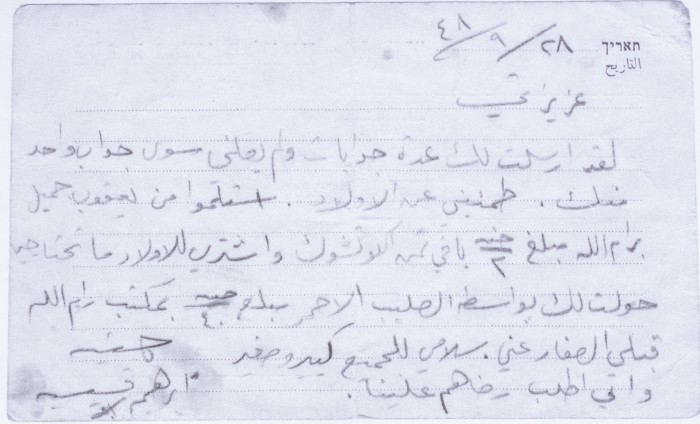 תאריך ٢٨/٩/٤٨
التاريخ
عزيزتي
لقد ارسلت لك عدة جوابات ولم يصلني سوى جواب واحد
منك. طمنيني عن الاولاد. استلموا من يعقوب جميل
برام الله مبلغ جنيه ٢ باقي ثمن واشتري للاولاد ما تحتاجين
حولت لك بواسطة الصليب الاحمر مبلغ جنيه ٤٠ بمكتب رام الله
قبلي الصغار عني. سلامي للجميع كبير وصغير
واني اطلب رضاهم علينا. ابرهيم